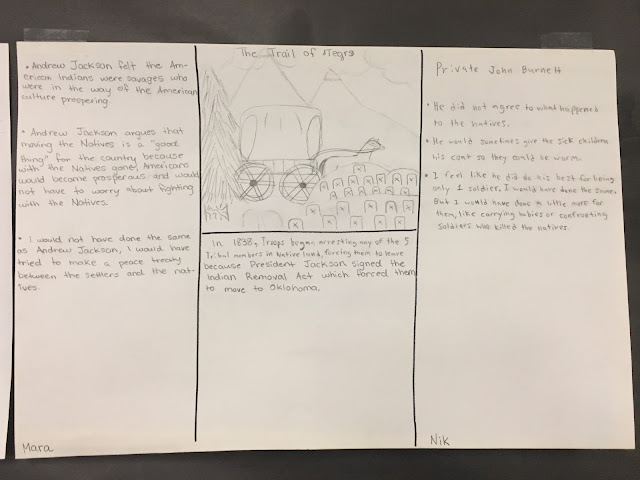 • Andrew Jackson felt the Am-
ericam Indians were savages who
were in the way of the American
culture prospering.
• Andrew Jackson argues that
moving the Natives is a "good
thing" for the country because
with the Natives gone, Americans
would become prosperous and would
not have to worry about fighting
with the Natives.
• I would not have done the same
as Andrew Jackson, I would have
tried to make a peace treaty
between the settlers and the nat-
ives.
Mara
The Trail of Tears
In 1838, Troops began arresting any of the 5
Tribal members in Native land, forcing them to leave
because President Jackson signed the
Indian Removal Act which forced them
to move to Oklahoma.
Private John Burnett
• He did not agree to what happened
to the natives.
• He would sometimes give the sick children
his coat so they could be warm.
• I feel like he did do his best for being
only 1 soldier. I would have done the same.
But I would have done a little more for
them, like carrying babies or confronting
soldiers who killed the natives.
Nik